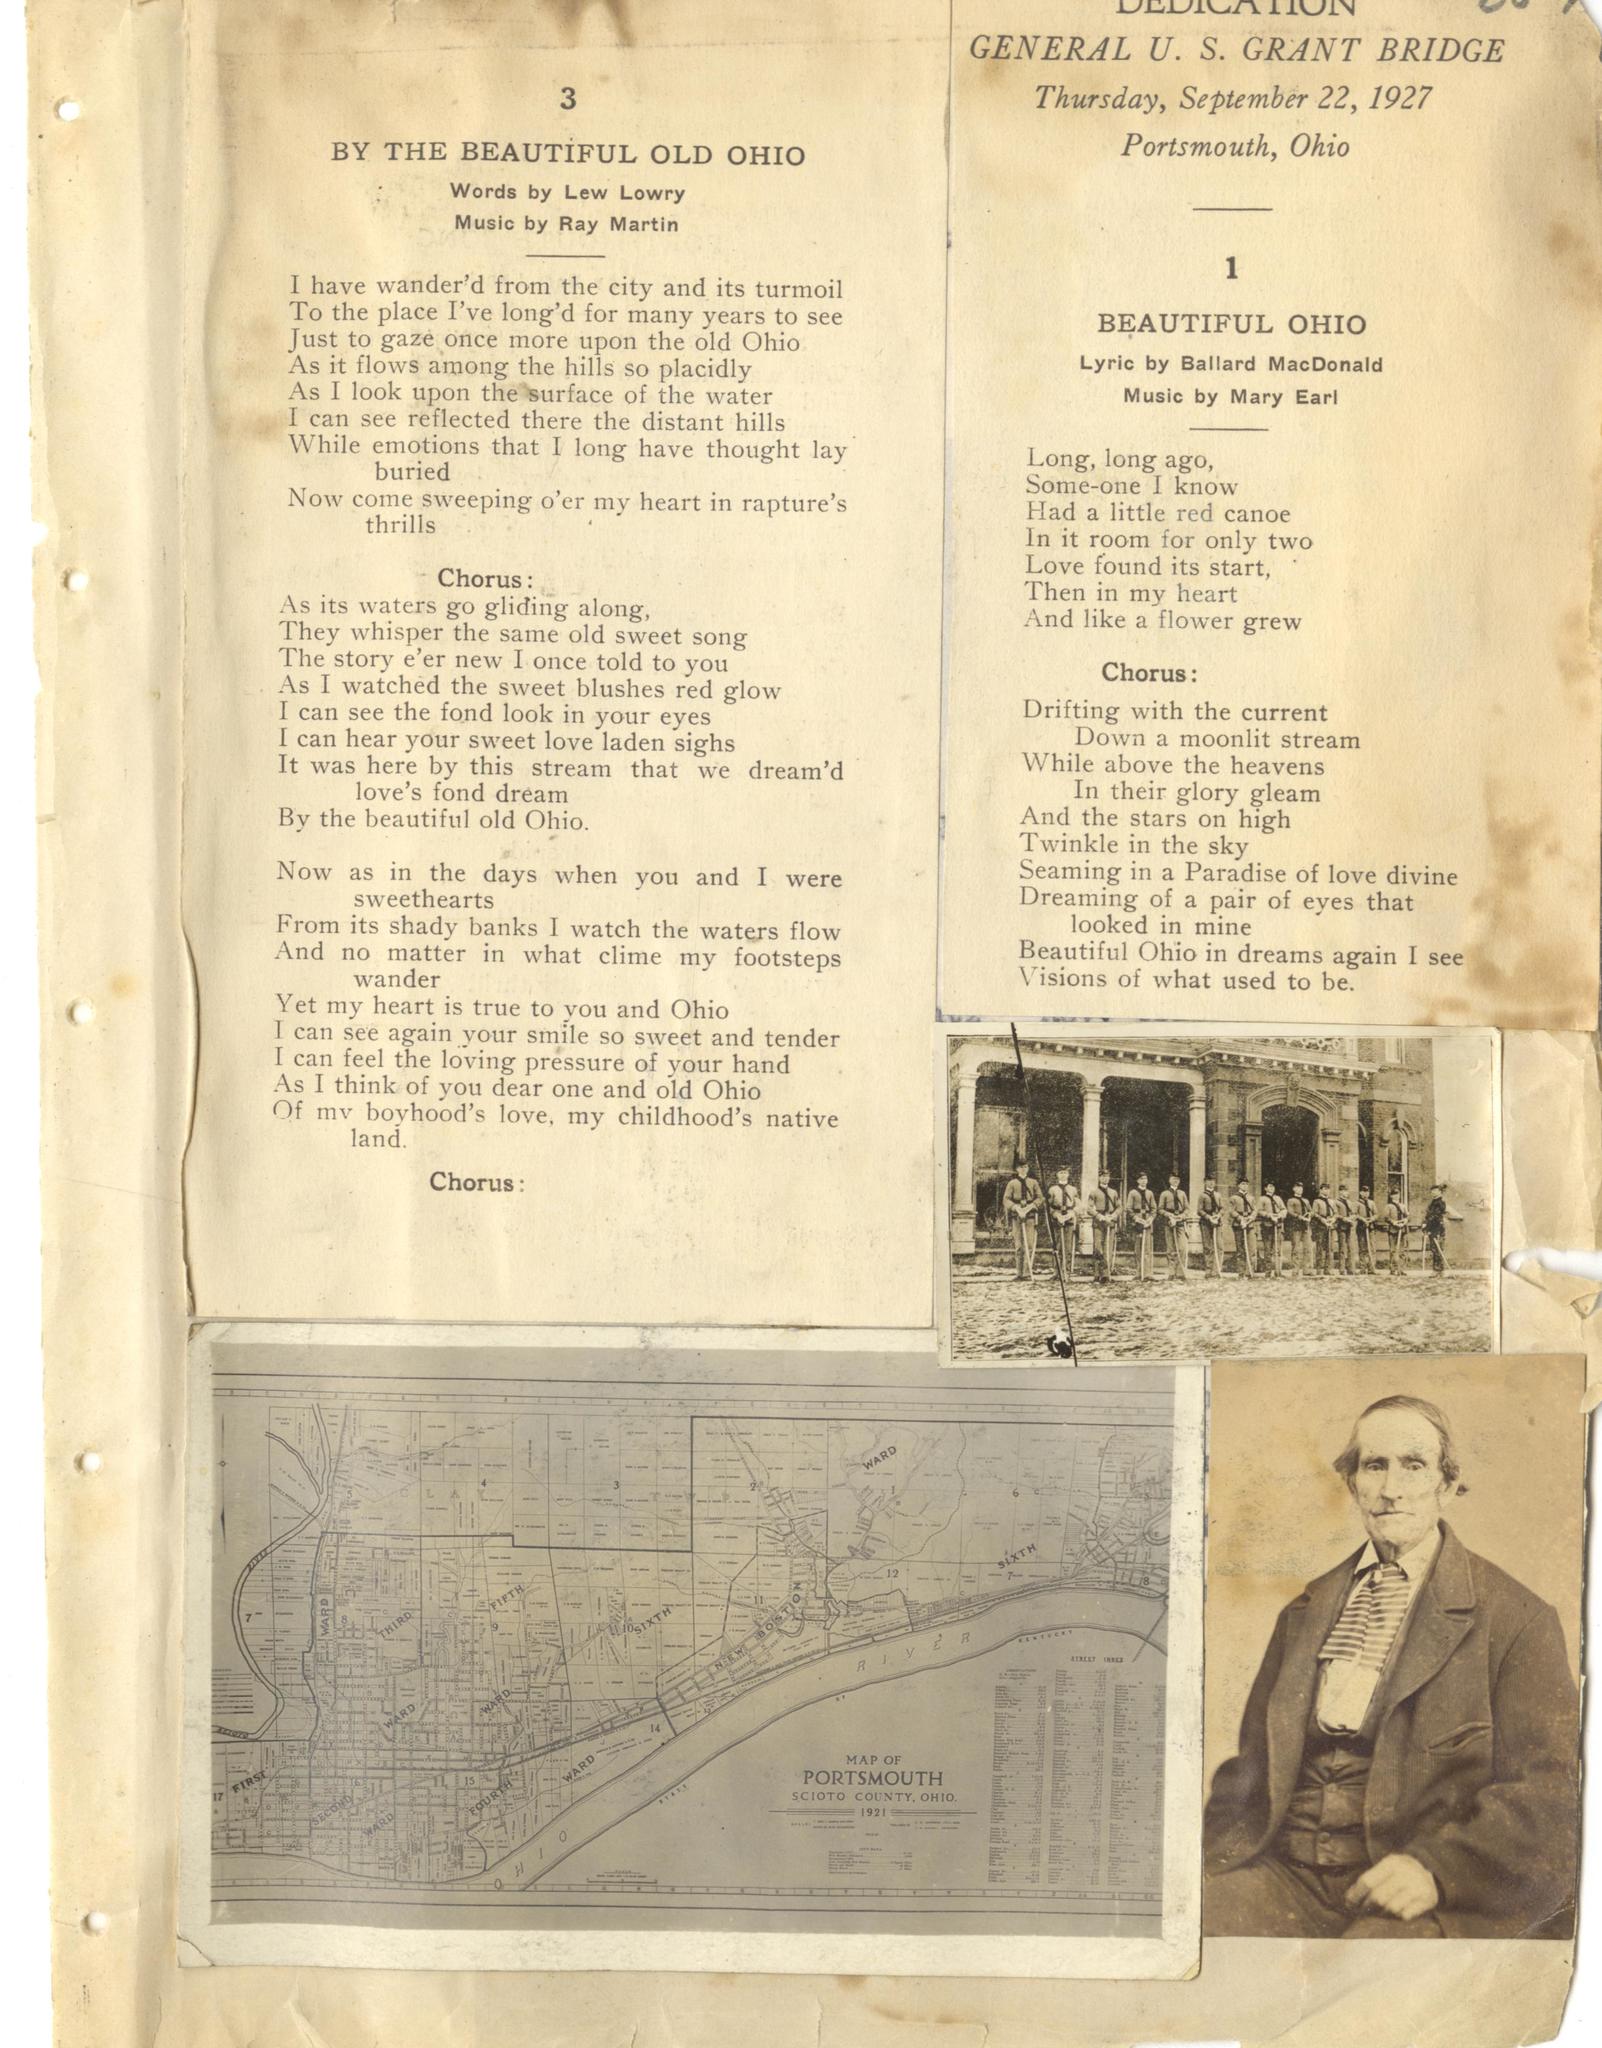 3
BY THE BEAUTIFUL OLD OHIO
Words by Lew Lowry
Music by Ray Martin
I have wander'd from the city and its turmoil
To the place I've long'd for many years to see
Just to gaze once more upon the old Ohio
As it flows among the hills so placidly
As I look upon the surface of the water
I can see reflected there the distant hills
While emotions that I long have thought lay
buried
Now come sweeping o'er my heart in rapture's
thrills
Chorus:
As its waters go gliding along,
They whisper the same old sweet song
The story e'er new I once told to you
As I watched the sweet blushes red glow
I can see the fond look in your eyes
I can hear your sweet love laden sighs
It was here by this stream that we dream'd
love's fond dream
By the beautiful old Ohio.
Now as in the days when you and I were
sweethearts
From its shady banks I watch the waters flow
And no matter in what clime my footsteps
wander
Yet my heart is true to you and Ohio
I can see again your smile so sweet and tender
I can feel the loving pressure of your hand
As I think of you dear one and old Ohio
Of my boyhood's love, my childhood's native
land.
Chorus:
DEDICATION
GENERAL U. S. GRANT BRIDGE
Thursday, September 22, 1927
Portsmouth, Ohio
1
BEAUTIFUL OHIO
Lyric by Ballard MacDonald
Music by Mary Earl
Long, long ago,
Some-one I know
Had a little red canoe
In it room for only two
Love found its start,
Then in my heart
And like a flower grew
Chorus:
Drifting with the current
Down a moonlit stream
While above the heavens
In their glory gleam
And the stars on high
Twinkle in the sky
Seaming in a Paradise of love divine
Dreaming of a pair of eyes that
looked in mine
Beautiful Ohio in dreams again I see
Visions of what used to be.
WARD
4
3
2
1
6
SIXTH
7
12
8
11
NEW BOSTON
FIFTH
9
10
SIXTH
WARD
THIRD
7
8
WARD
WARD
14
WARD
FIRST
17
SECOND
16
WARD
15
FOURTH
OHIO
RIVER
KENTUCKY
STATE
OF
STREET INDEX
MAP OF
PORTSMOUTH
SCIOTO COUNTY, OHIO.
1921